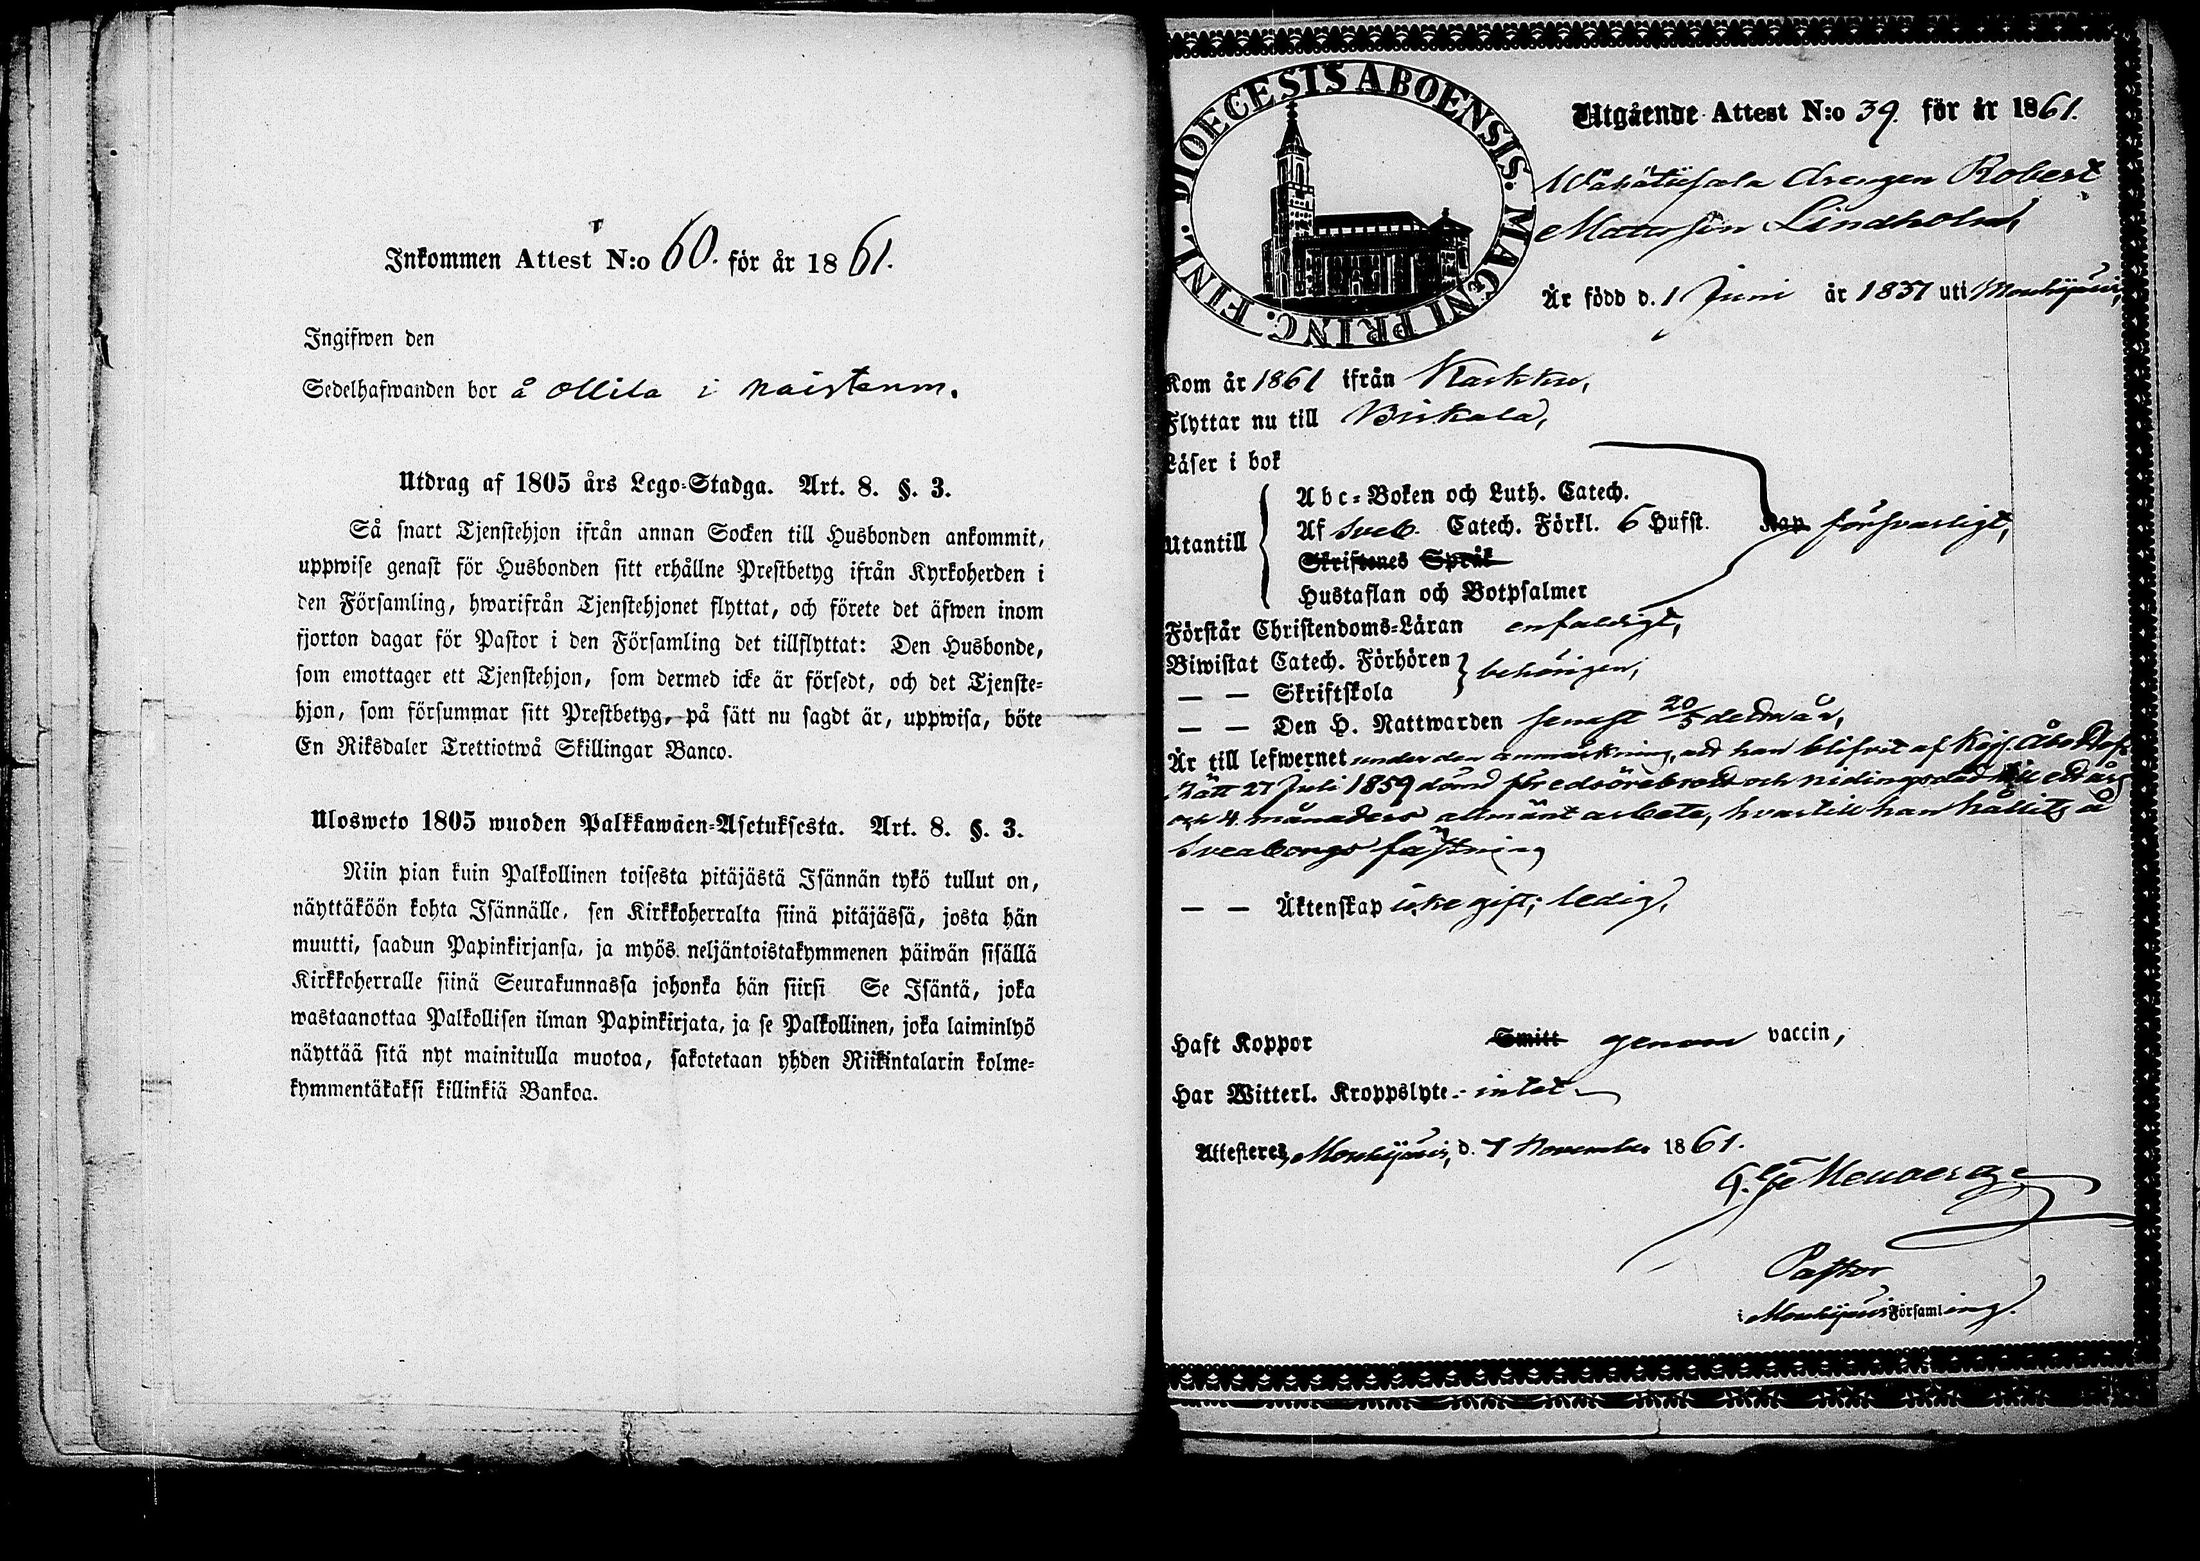 Inkommen Attest N:o 60. för år 1861.
Ingifwen den
Sedelhafwanden bor å Ollila i Naistenm.
Utdrag af 1805 års Lego-Stadga. Art. 8. §. 3.
Så snart Tjenstehjon ifrån annan Socken till Husbonden ankommit,
uppwise genast för Husbonden sitt erhållne Prestbetyg ifrån Kyrkoherden i
den Församling, hwarifrån Tjenstehjonet flyttat, och förete det äfwen inom
fjorton dagar för Pastor i den Församling det tillflyttat: Den Husbonde,
som emottager ett Tjenstehjon, som dermed icke är försedt, och det Tjenste-
hjon, som försummar sitt Prestbetyg, på sätt nu sagdt är, uppwisa, böte
En Riksdaler Trettiotwå Skillingar Banco.
Ulosweto 1805 wuoden Palkkawäen-Asetuksesta. Art. 8. §. 3.
Niin pian kuin Palkollinen toisesta pitäjästä Isännän tykö tullut on,
näyttäköön kohta Isännälle, sen Kirkkoherralta siinä pitäjässä, josta hän
muutti, saadun Papinkirjansa, ja myös neljäntoistakymmenen päiwän sisällä
Kirkkoherralle siinä Seurakunnassa johonka hän siirsi Se Isäntä, joka
wastaanottaa Palkollisen ilman Papinkirjata, ja se Palkollinen, joka laiminlyö
näyttää sitä nyt mainitulla muotoa, sakotetaan yhden Riikintalarin kolme-
kymmentäkaksi killinkiä Bankoa.
FINL. DIOECESIS ABOENSIS. MAGNI PRINC.
Utgående Attest N:o 39. för år 1861.
Drengen Robert
Mattsson Lindholm,
Är född d. 1 Juni år 1837 uti Mouhijärvi,
Kom år 1861 ifrån Karkku,
Flyttar nu till Birkala,
Läser i bok
Utantill
Abc-Boken och Luth. Catech.
Af Sveb. Catech. Förkl. 6 Hufst. Kap. försvarligt,
Skriftenes Språk
Hustaflan och Botpsalmer
Förstår Christendoms-Läran enfaldigt,
Biwistat Catech. Förhören behörigen,
— — Skriftskola
— — Den H. Nattwarden senast 20/5 detta år,
Är till lefwernet under den anmärkning, att han blifvit af Kejs. Åbo Hof-
Rätt 27 Juli 1859 dömd för edsöresbrott och nidingsdåd till ett års
och 4 månaders allmänt arbete, hvartill han hållits å
Sveaborgs fästning
— — Äktenskap icke gift; ledig,
Haft Koppor Smitt genom vaccin,
Har Witterl. Kroppslyte - intet
Attesteres, Mouhijärvi, d. 7 November 1861.
Pastor
i Mouhijärvi Församling.